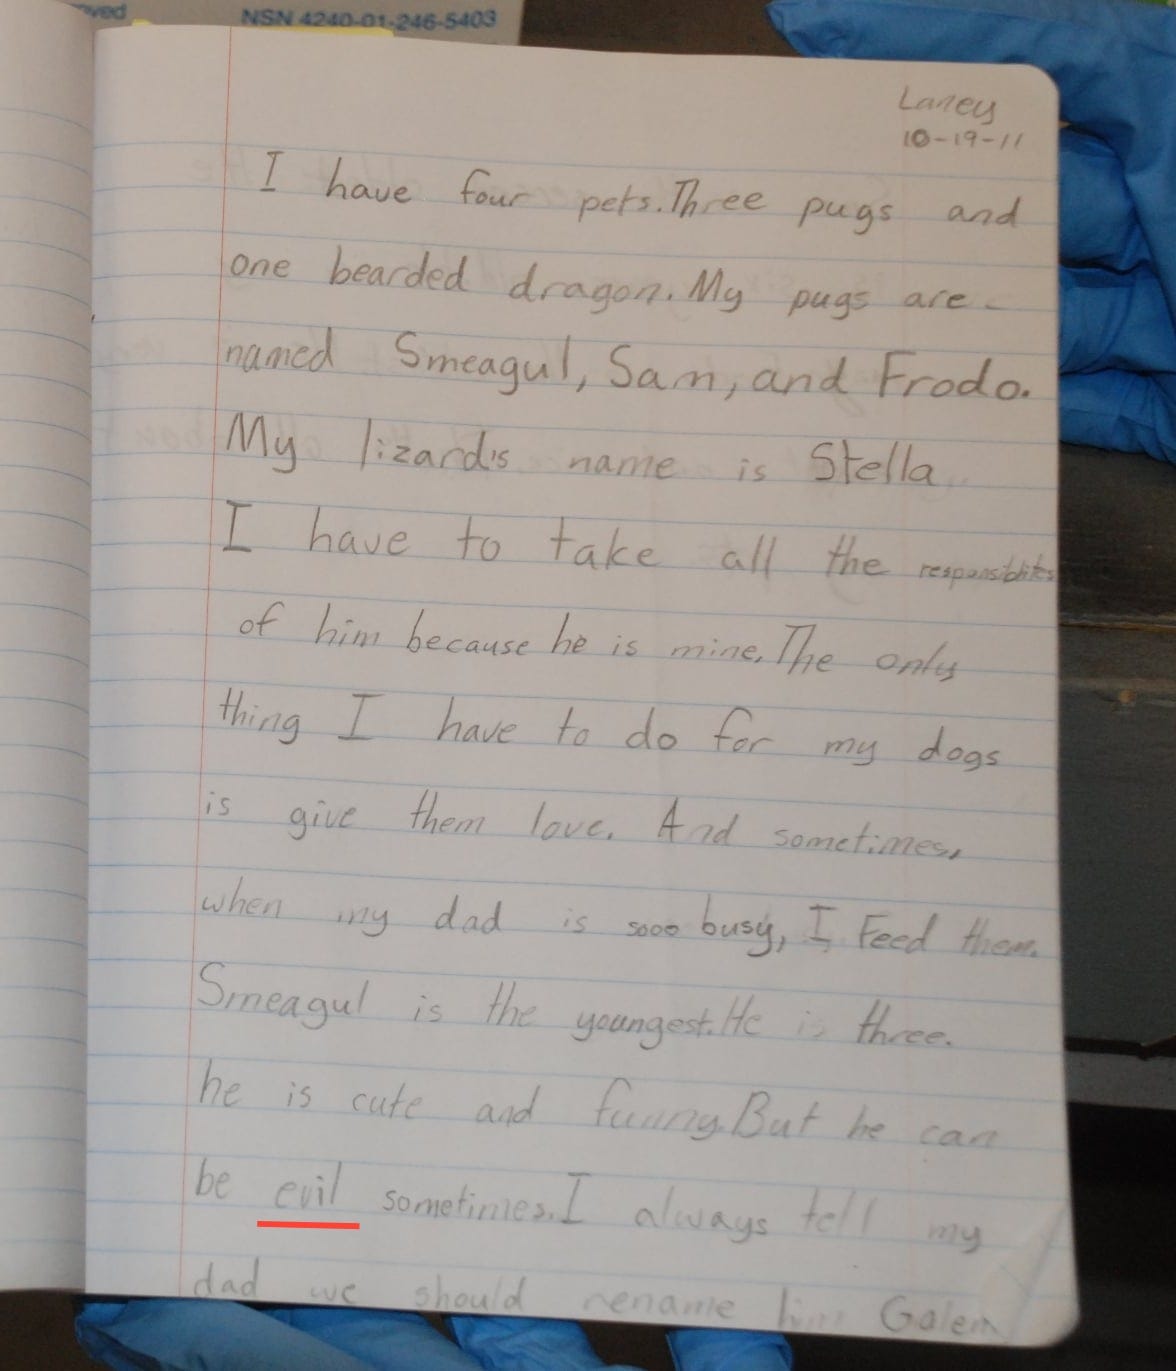 NSN 4240-01-246-5403
Laney
10-19-11
I have four pets. Three pugs and
one bearded dragon. My pugs are
named Smeagul, Sam, and Frodo.
My lizard's name is Stella
I have to take all the responsiblites
of him because he is mine. The only
thing I have to do for my dogs
is give them love. And sometimes,
when my dad is sooo busy, I Feed them.
Smeagul is the youngest. He is three.
he is cute and funny. But he can
be evil sometimes. I always tell my
dad we should rename him Golem